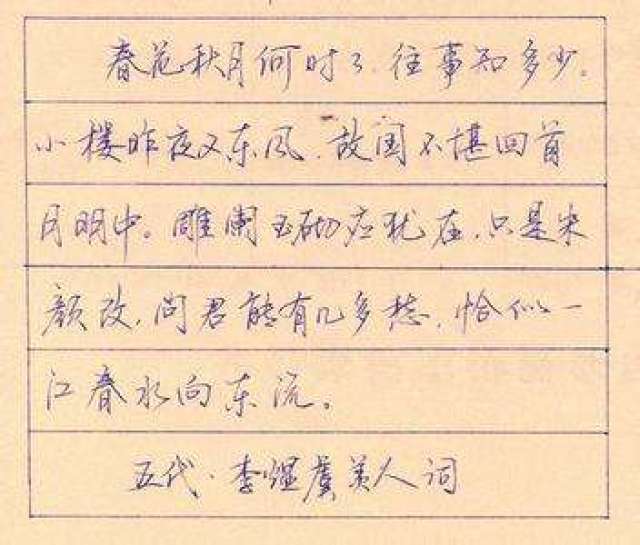 春花秋月何时了,往事知多少。
小楼昨夜又东风,故国不堪回首
月明中。雕阑玉砌应犹在,只是朱
颜改,问君能有几多愁,恰似一
江春水向东流。
五代·李煜虞美人词